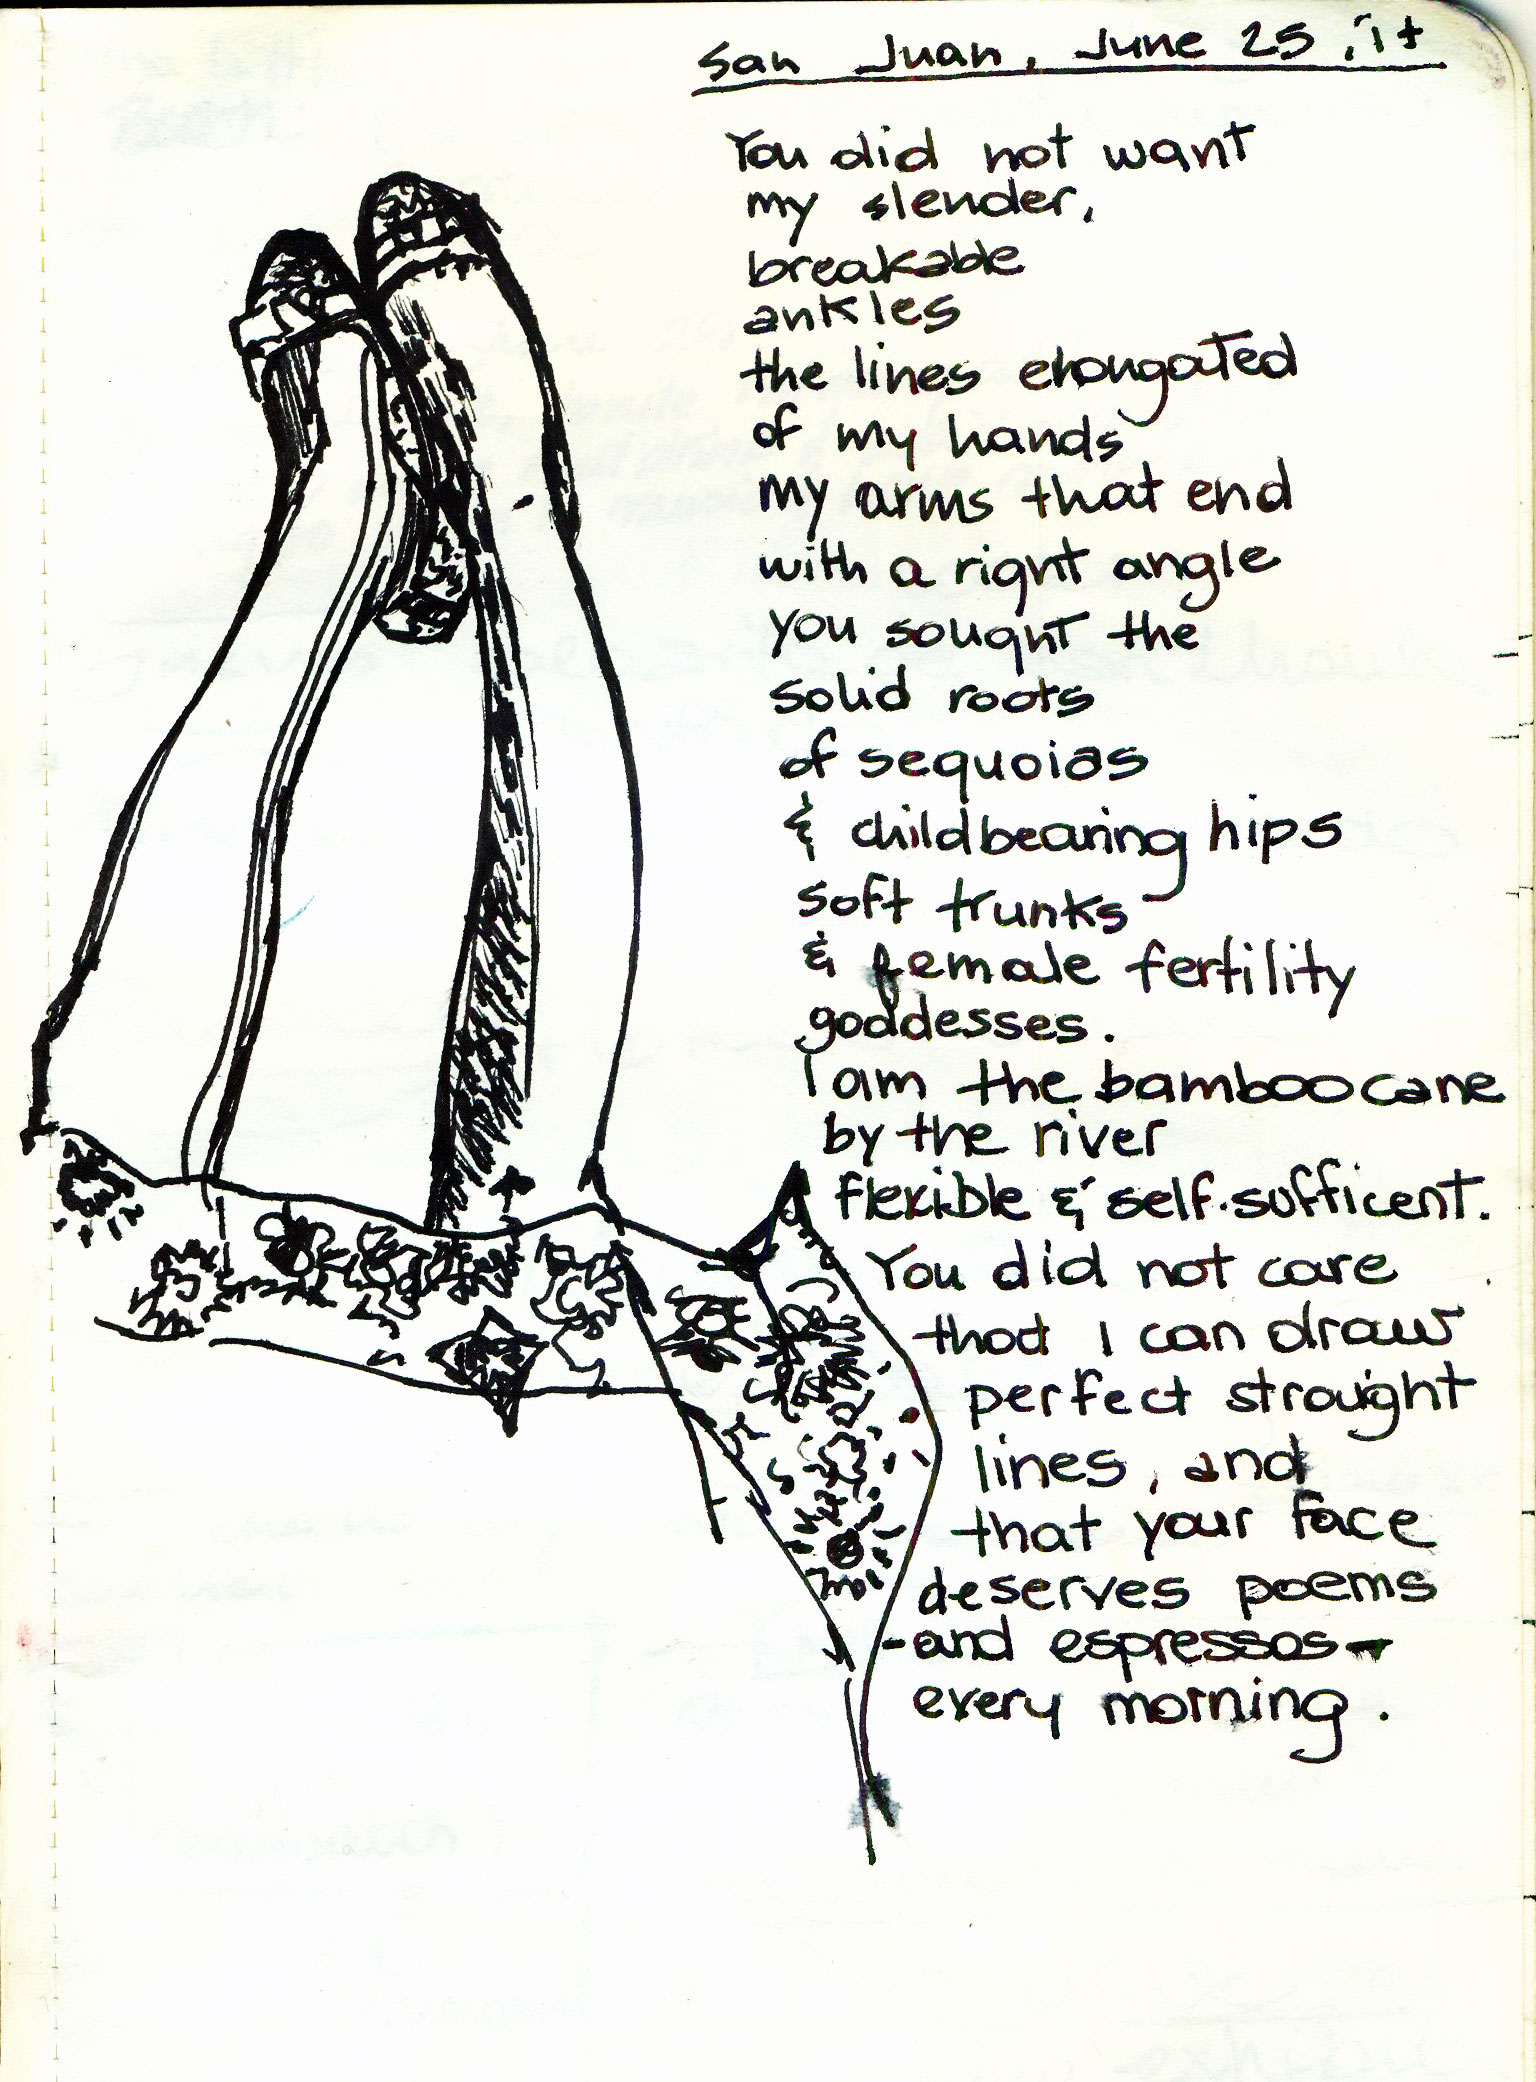 San Juan, June 25,
You did not want
my slender,
breakable
ankles
the lines elongated
of my hands
my arms that end
with a right angle
you sought the
solid roots
of sequoias
& childbearing hips
soft trunks
& female fertility
goddesses.
I am the bamboo cane
by the river
flexible & self-sufficent.
You did not care
that I can draw
perfect straight
lines, and
that your face
deserves poems
-and espressos-
every morning.